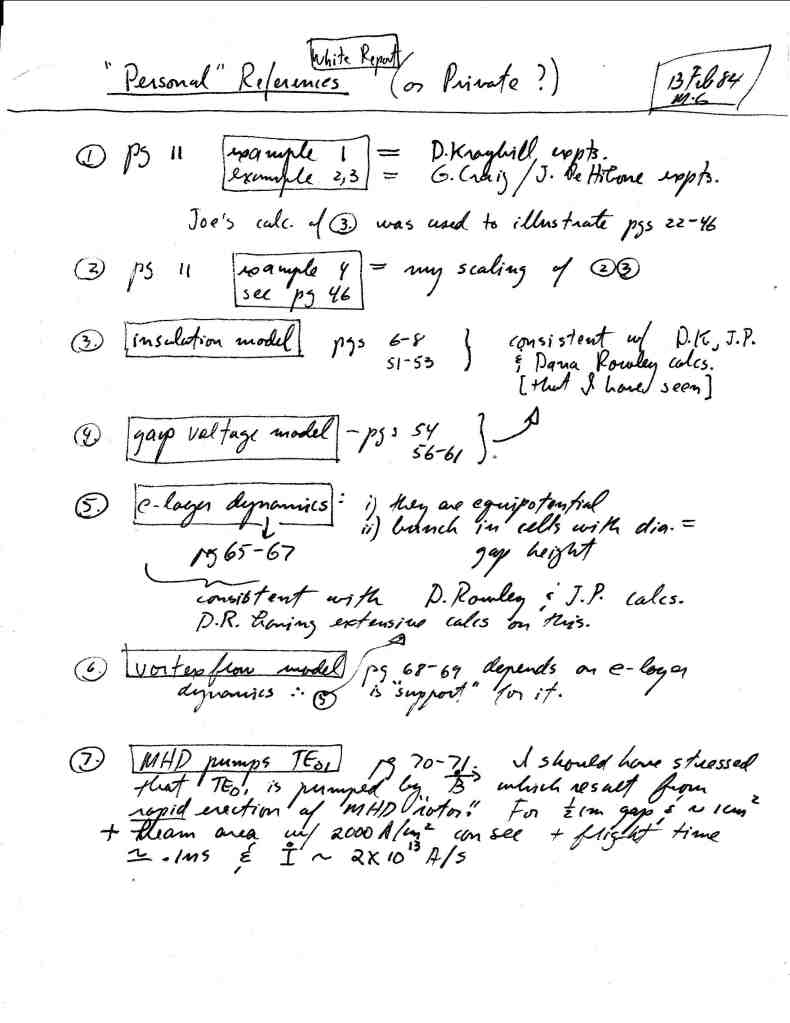 White Report
"Personal" References (or Private ?)
13 Feb 84
M.G
① pg 11 example 1 = D. Kraybill expts.
example 2,3 = G. Craig / J. expts.
Joe's calc. of ③ was used to illustrate pgs 22-46
② pg 11 example 4 = my scaling of ②③
see pg 46
③. insulation model pgs 6-8 consistent w/ D.K, J.P.
51-53 & Dana Rowley calcs.
[that I have seen]
④. gap voltage model - pgs 54
56-61
⑤. e-layer dynamics: i) they are equipotential
ii) bunch in cells with dia. =
pg 65-67 gap height
consistent with D. Rowley & J.P. calcs.
D.R. having extensive calcs on this.
⑥. vortex flow model pg 68-69 depends on e-layer
dynamics ∴ ⑤ is "support" for it.
⑦. MHD pumps TE01 pg 70-71. I should have stressed
that TE01 is pumped by Ḃ which result from
rapid erection of MHD "rotor." For ½ cm gap & ~ 1cm²
+ beam area w/ 2000 A/cm² can see + flight time
≃ .1ns & İ ~ 2X10¹³ A/s